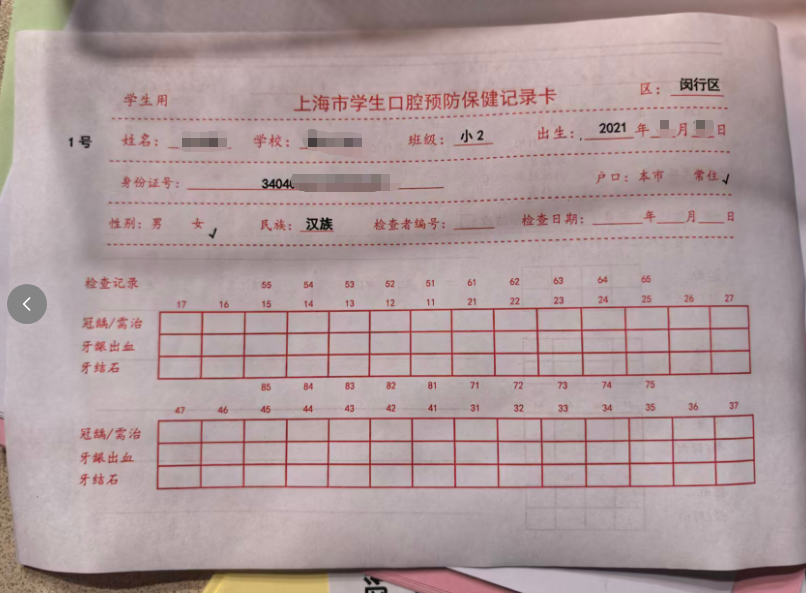 学生用 上海市学生口腔预防保健记录卡 区: 闵行区
1号 姓名: 学校: 班级: 小2 出生: 2021 年 月 日
身份证号: 3404 户口: 本市 常住✓
性别: 男 女✓ 民族: 汉族 检查者编号: 检查日期: 年 月 日
检查记录 55 54 53 52 51 61 62 63 64 65
17 16 15 14 13 12 11 21 22 23 24 25 26 27
冠龋/需治
牙龈出血
牙结石
85 84 83 82 81 71 72 73 74 75
47 46 45 44 43 42 41 31 32 33 34 35 36 37
冠龋/需治
牙龈出血
牙结石